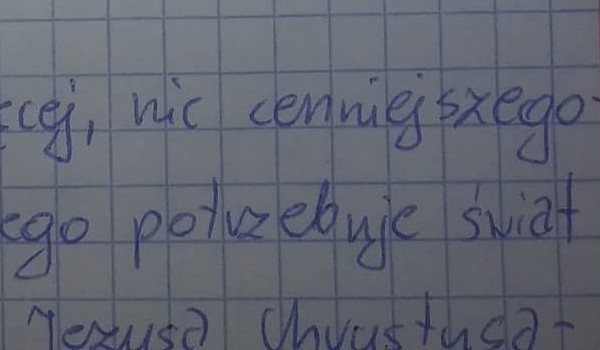 ęcej, nic cenniejszego-
ego potrzebuje świat
Jezusa Chrystusa-